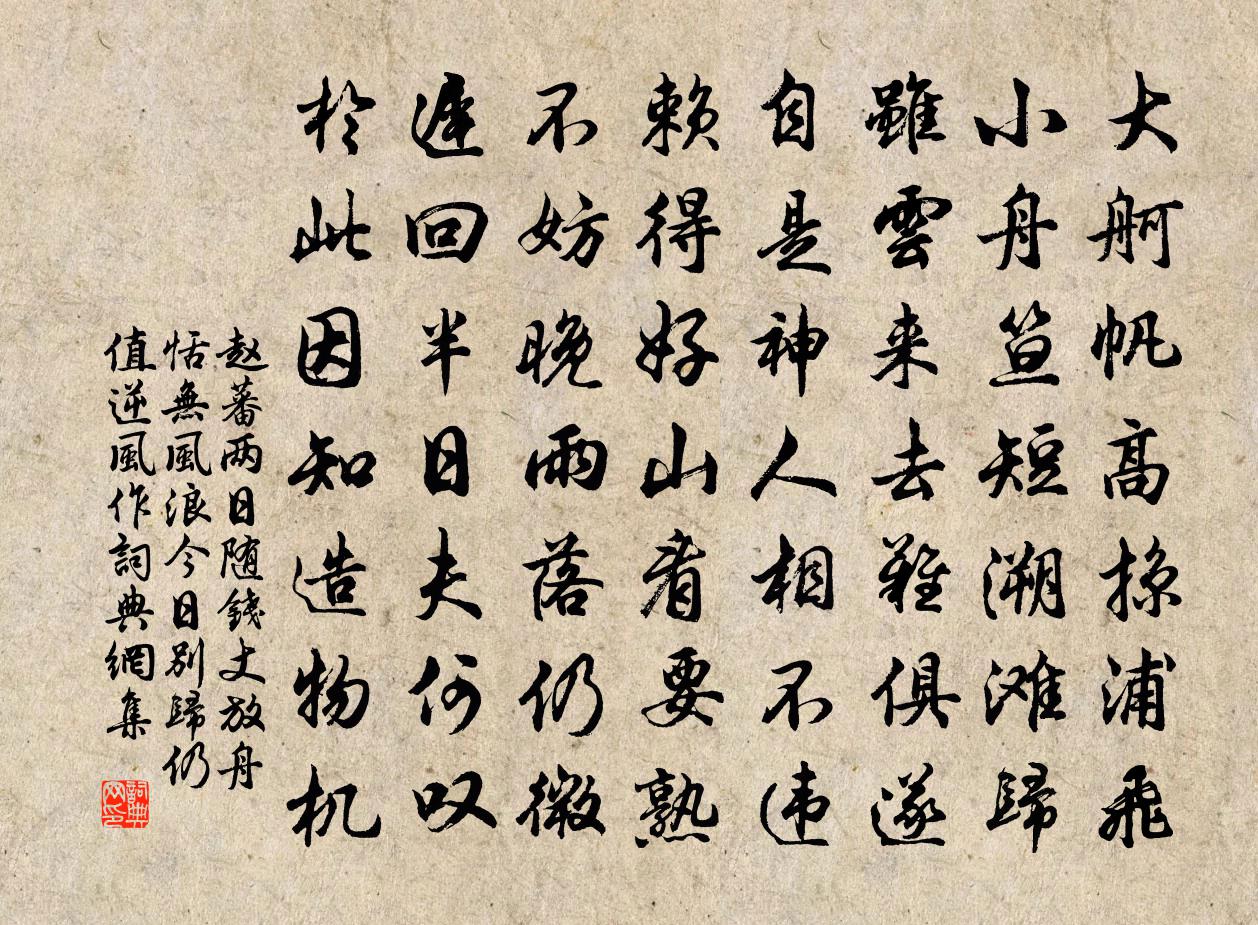 大舸帆高掠浦飛
小舟笪短溯滩歸
雖雲来去難俱遂
自是神人相不违
赖得好山看要熟
不妨晚雨落仍微
遲回半日夫何叹
於此因知造物机
赵蕃两日随錢丈放舟
恬無風浪今日别歸仍
值逆風作詞典網集
詞典
网印